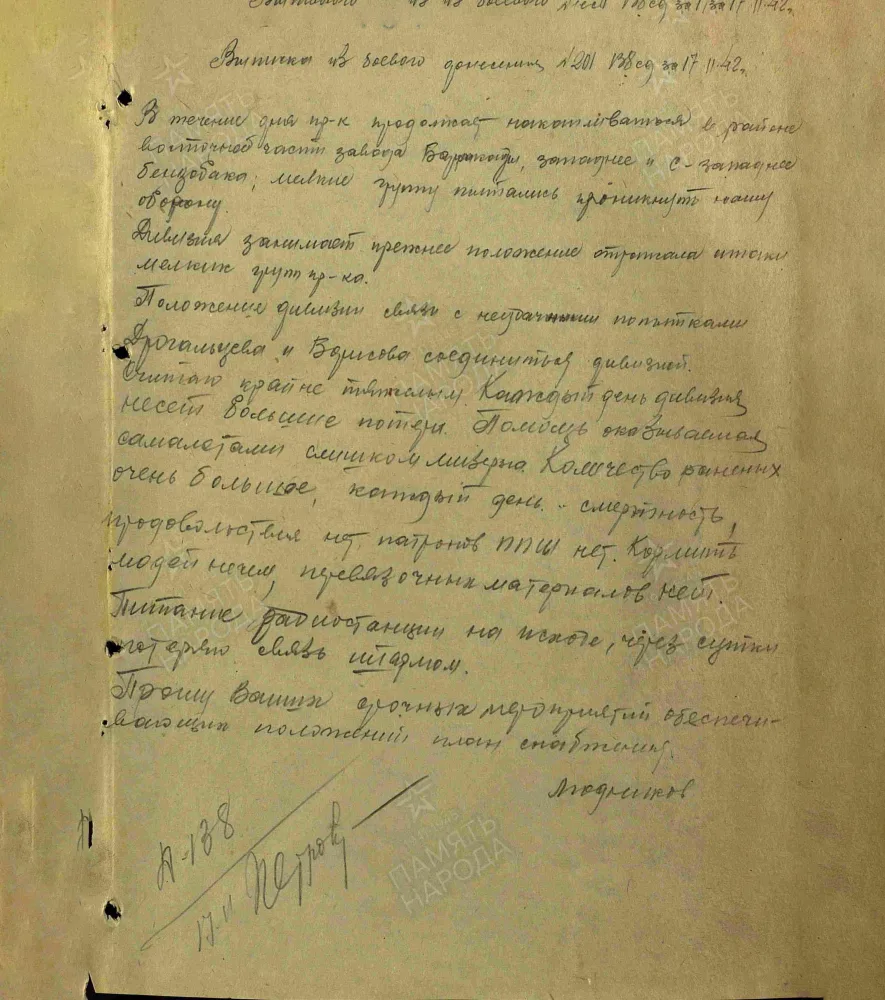 из боевого
за 17 11-42г.
Выписка из боевого донесения №201 138 сд за 17 11-42г.
В течение дня пр-к продолжает накапливаться в районе
восточной части завода Баррикады, западнее и с-западнее
бензобака; мелкие группы пытались проникнуть нашу
оборону.
Дивизия занимает прежнее положение отражала атаки
мелких групп пр-ка.
Положение дивизии связи с неудачными попытками
Дрогальцева и Борисова соединиться дивизией.
Считаю крайне тяжелым. Каждый день дивизия
несет большие потери. Помощь оказываемая
самалетами слишком мизерна. Количество раненых
очень большое, каждый день - смертность,
продовольствия нет, патронов ППШ нет. Кормить
людей нечем, перевязочных материалов нет.
Питание радиостанции на исходе, через сутки
потеряю связь штармом.
Прошу Ваших срочных мероприятий обеспечи-
вающих положений план снабжения.
Людников
П-138
17-11 Петров
ПАМЯТЬ
НАРОДА